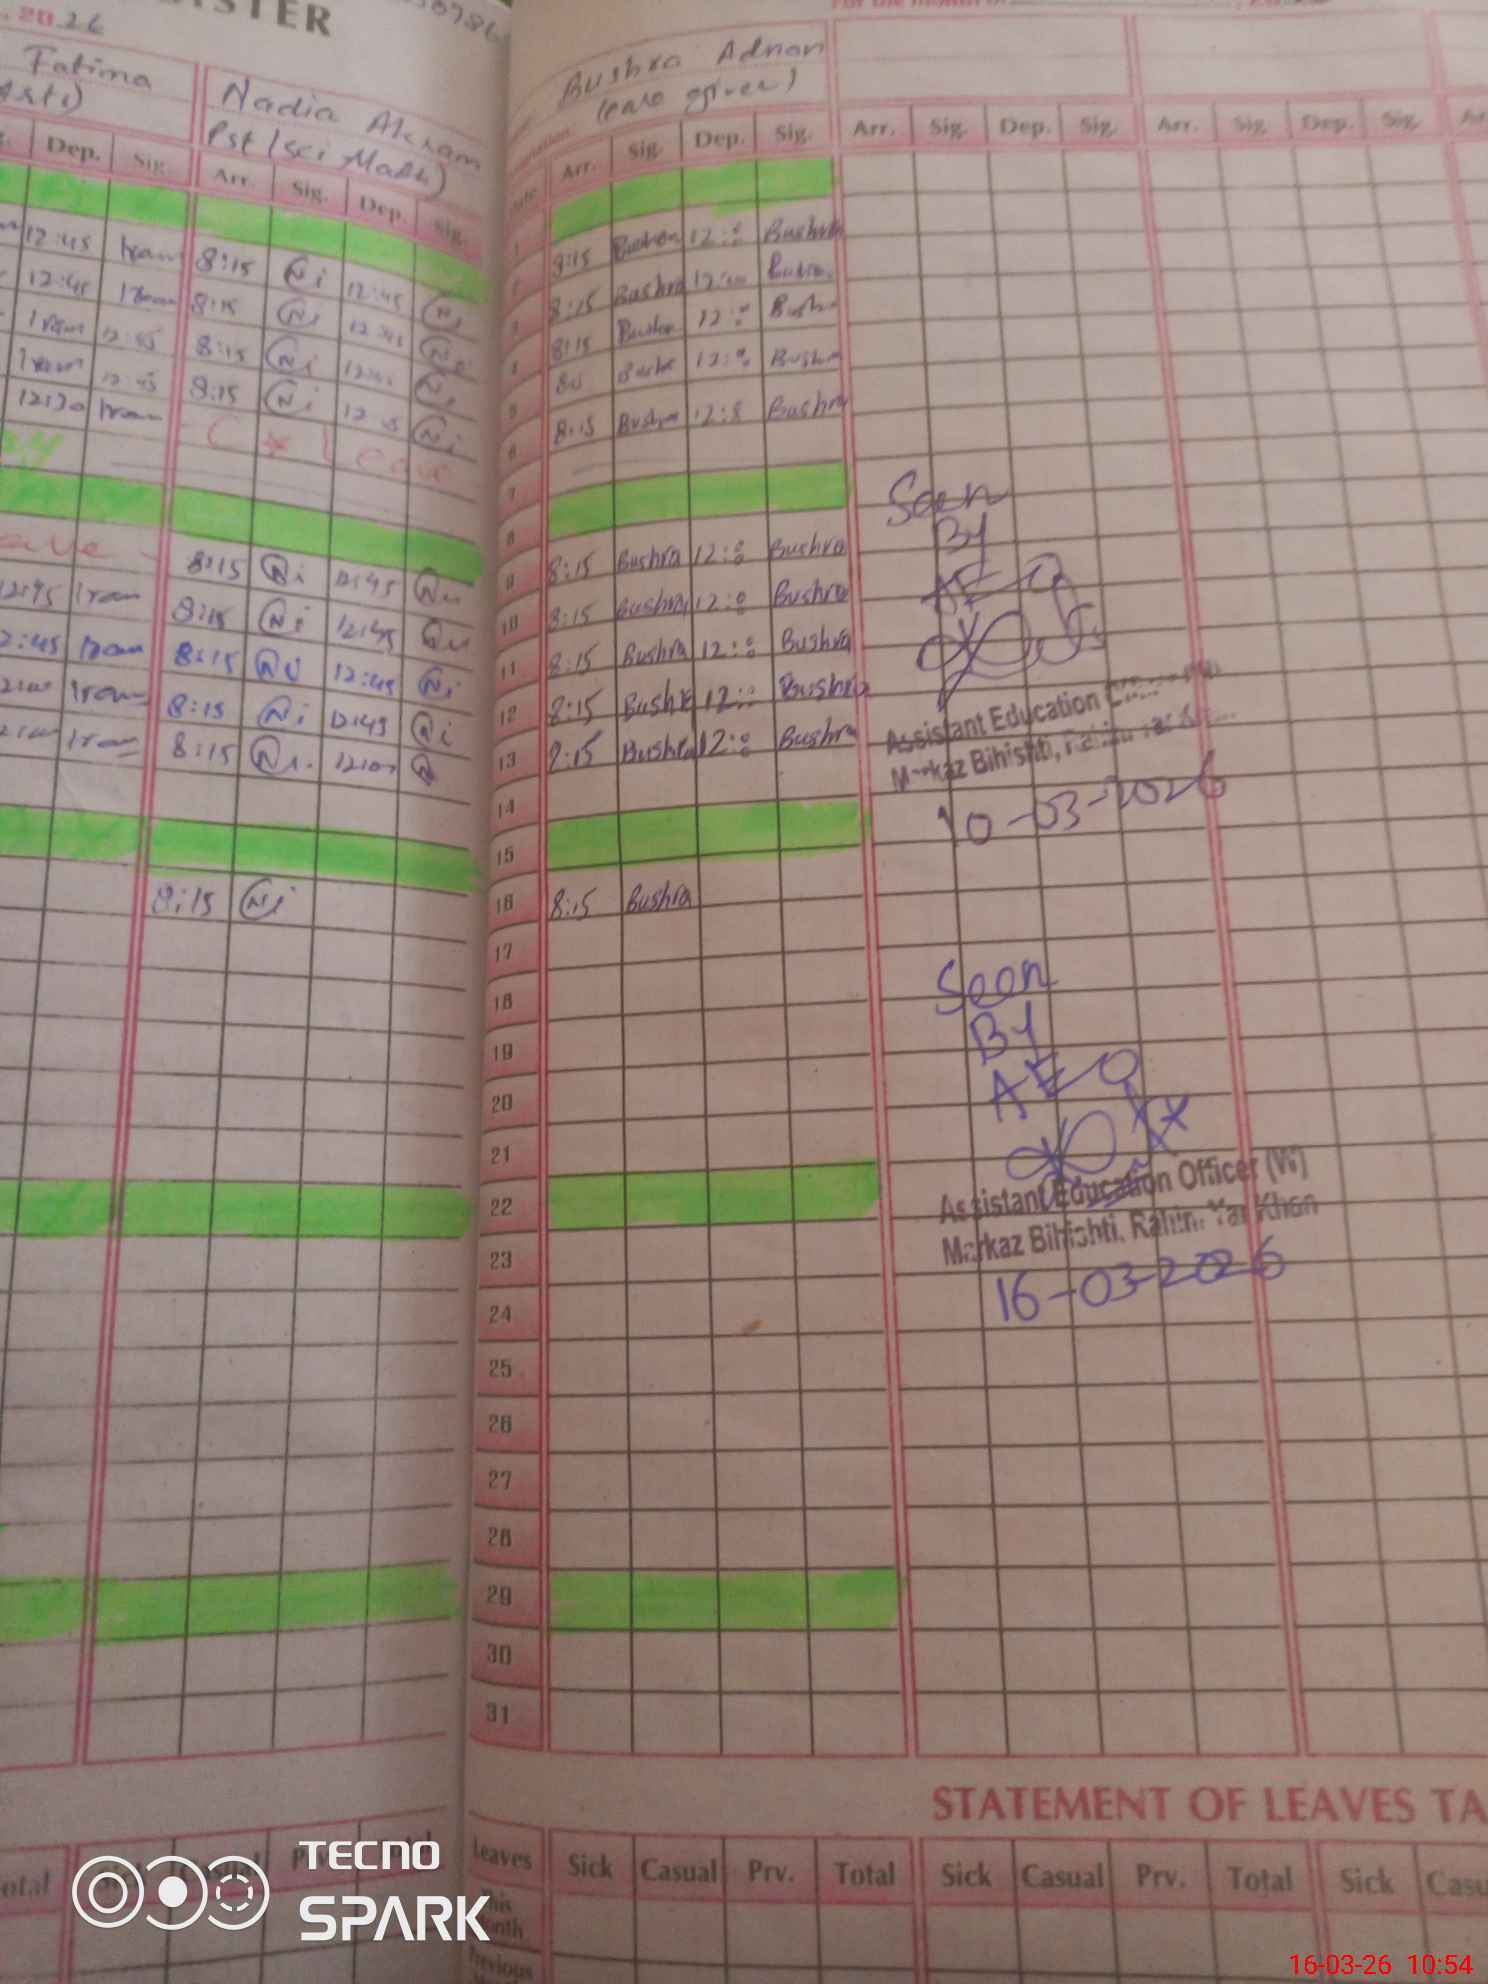 ISTER
20.26
Fatima
Nadia Akram
Pst (Sci Math)
Dep. Sig. Arr. Sig. Dep. Sig.
12:45 Iram 8:15 Ni 12:45 Ni
12:45 Iram 8:15 Ni 12:45 Ni
Iram 12:45 8:15 Ni Ni
Iram 12:45 8:15 Ni 12:45 Ni
12:30 Iram C Leave
8:15 Ni 12:45
12:45 Iram 8:15 Ni 12:45
2:45 Iram 8:15 Ni 12:45 Ni
Iram 8:15 Ni 12:45 Ni
Iram 8:15 Ni
8:15 Ni
Bushra Adnan
(care giver)
Arr. Sig. Dep. Sig. Arr. Sig. Dep. Sig. Arr. Sig. Dep. Sig.
1
8:15 Bushra 12:00 Bushra
8:15 Bushra 12:00 Bushra
3 8:15 Bushra 12:00 Bush
4 Bushra 12:00 Bushra
5 8:15 Bushra 12:0 Bushra
6
7
8
9 8:15 Bushra 12:00 Bushra
10 8:15 Bushra 12:00 Bushra
11 8:15 Bushra 12:00 Bushra
12 8:15 Bushra 12:00 Bushra
13 8:15 Bushra 12:00 Bushra
14
15
16 8:15 Bushra
17
18
19
20
21
22
23
24
25
26
27
28
29
30
31
Seen
By
AEO
Assistant Education
Markaz Bihishti,
10-03-2026
Seen
By
AEO
Assistant Education Officer (W)
Markaz Bihishti, Rahim Yar Khan
16-03-2026
STATEMENT OF LEAVES TA
otal
Leaves Sick Casual Prv. Total Sick Casual Prv. Total Sick Casu
This
Month
Previous
TECNO
SPARK
16-03-26 10:54